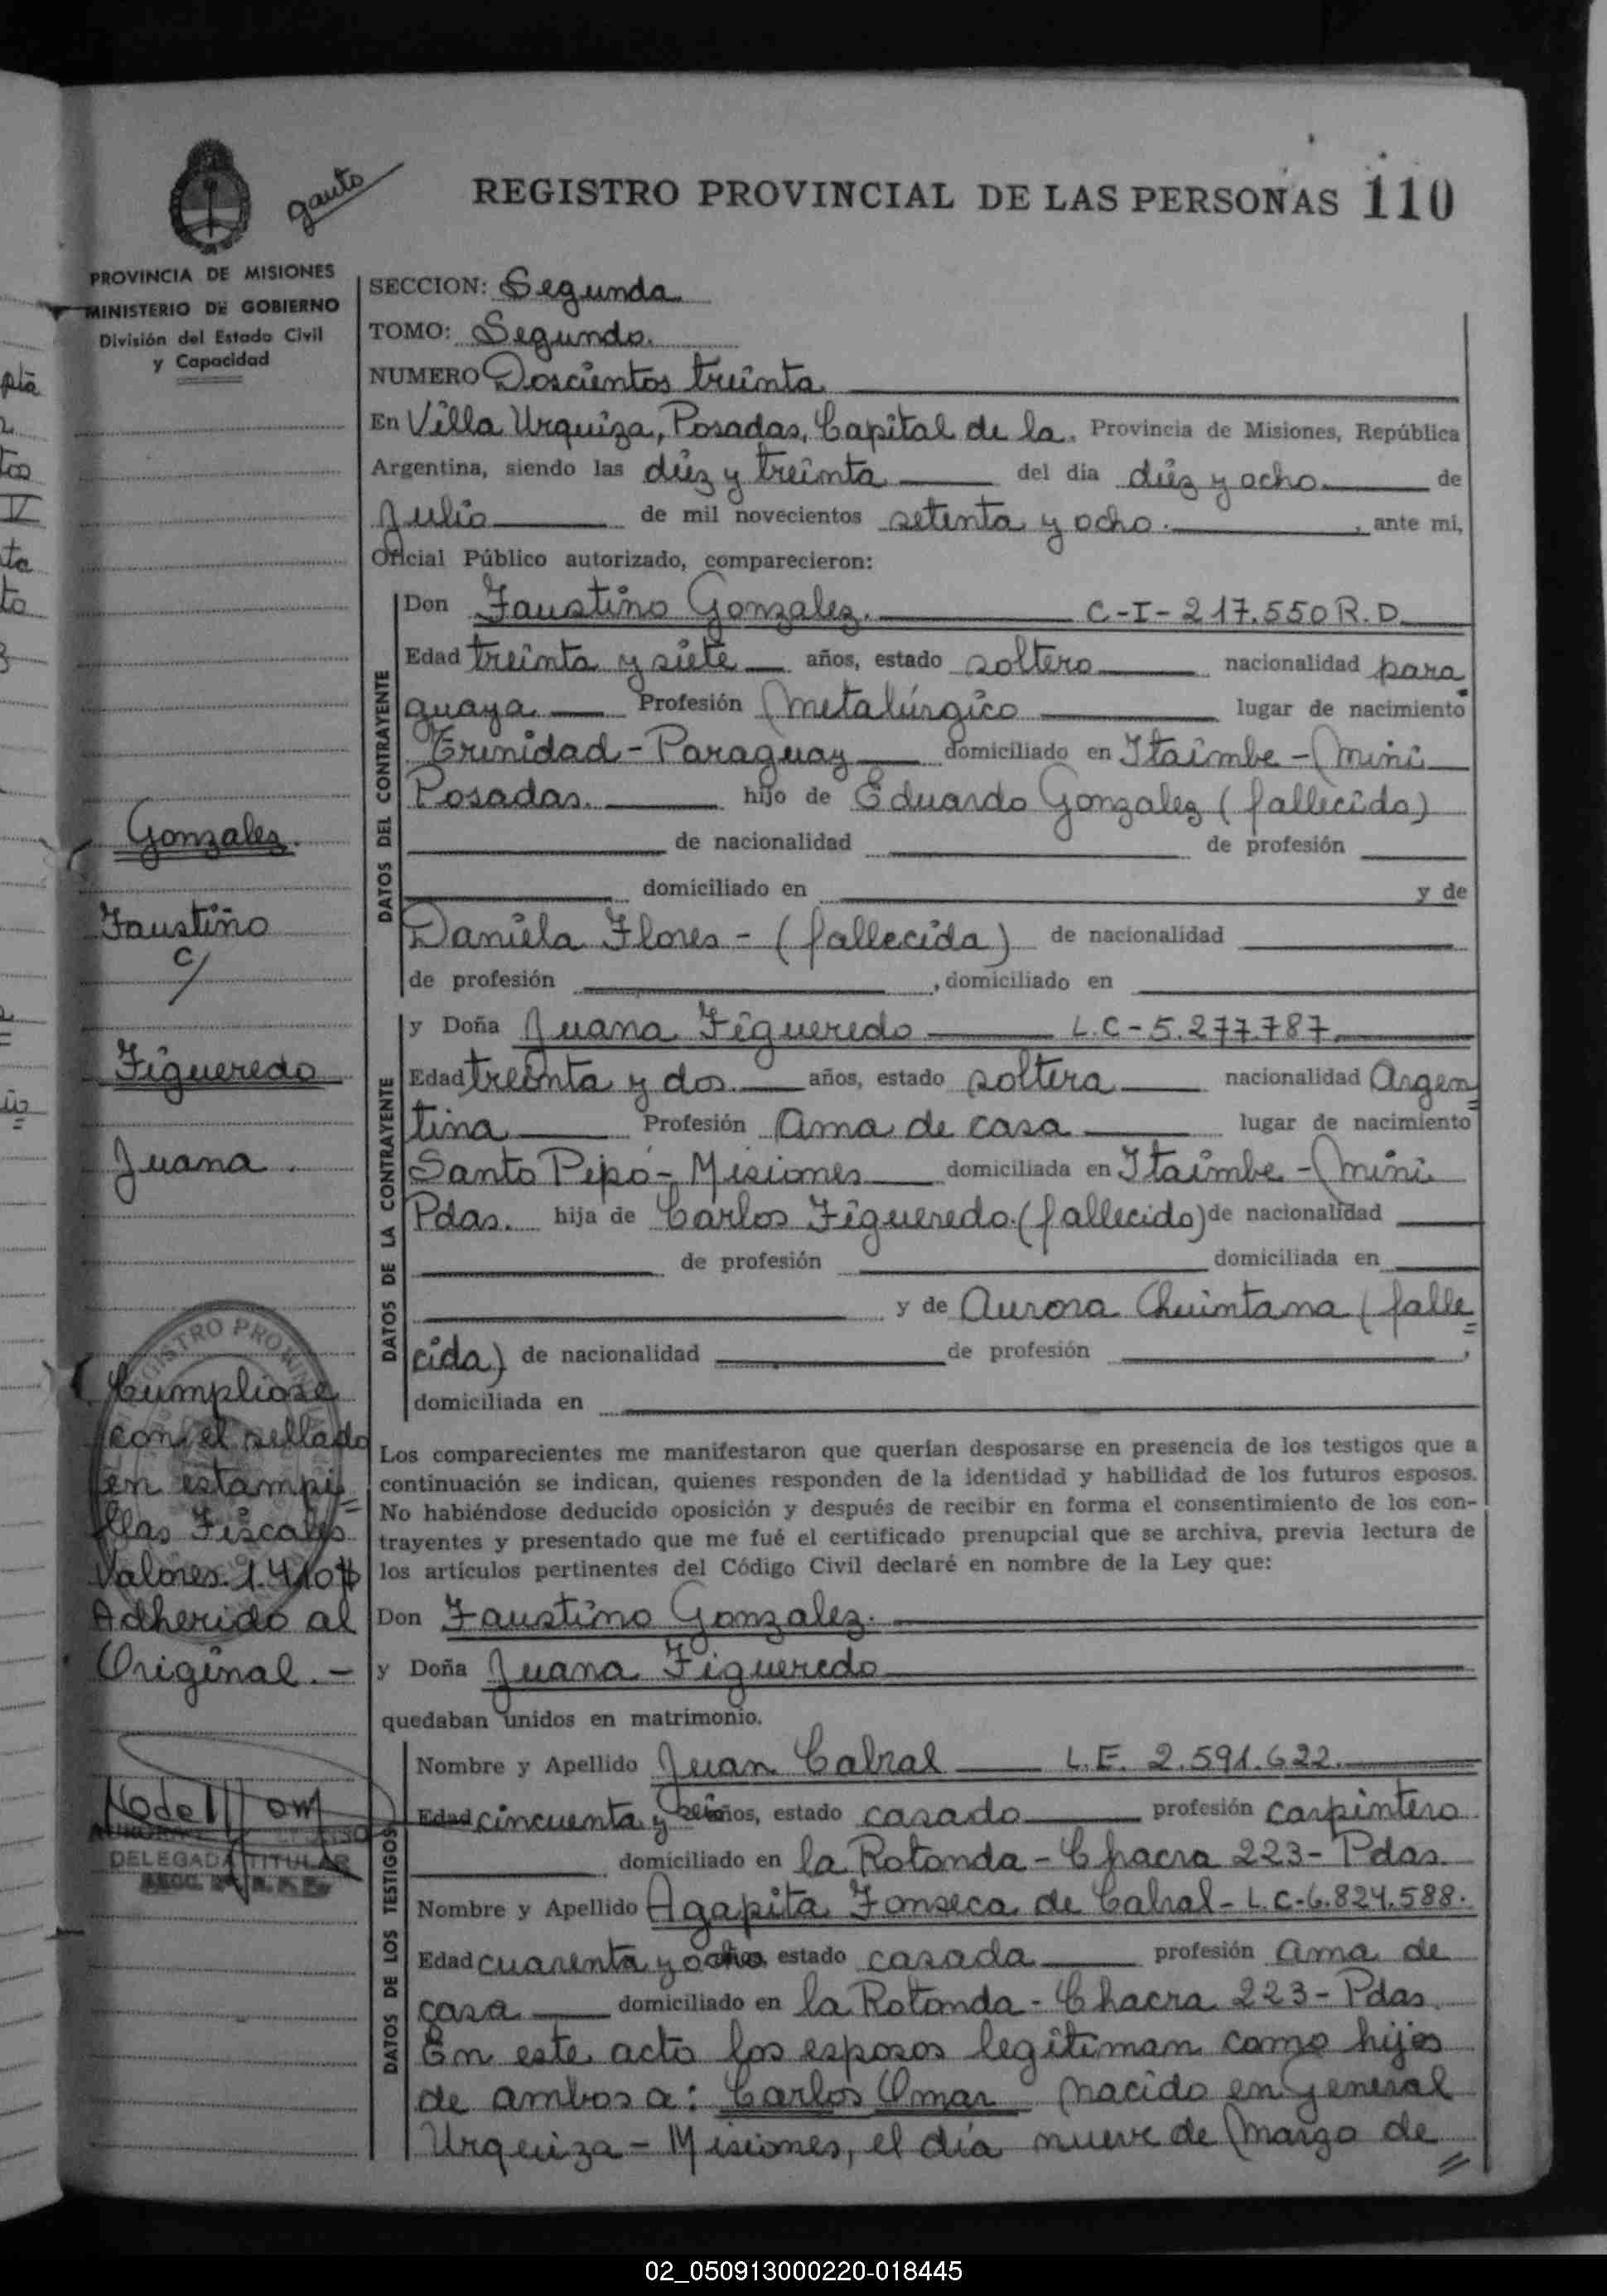 gauto
REGISTRO PROVINCIAL DE LAS PERSONAS 110
PROVINCIA DE MISIONES
MINISTERIO DE GOBIERNO
División del Estado Civil
y Capacidad
SECCION: Segunda
TOMO: Segundo.
NUMERO Doscientos treinta
En Villa Urquiza, Posadas, Capital de la. Provincia de Misiones, República
Argentina, siendo las diéz y treinta del día diéz y ocho de
Julio de mil novecientos setenta y ocho. , ante mi,
Oficial Público autorizado, comparecieron:
DATOS DEL CONTRAYENTE
Don Faustino Gonzalez. C-I-217.550 R.D.
Edad treinta y siete años, estado soltero nacionalidad para
guaya Profesión Metalúrgico lugar de nacimiento
Trinidad - Paraguay domiciliado en Itaimbe - Mini
Posadas. hijo de Eduardo Gonzalez (fallecido)
de nacionalidad de profesión
domiciliado en y de
Daniela Flores - (fallecida) de nacionalidad
de profesión , domiciliado en
DATOS DE LA CONTRAYENTE
y Doña Juana Figueredo L.C-5.277.787
Edad treinta y dos. años, estado soltera nacionalidad Argen
tina Profesión Ama de casa lugar de nacimiento
Santo Pipó - Misiones domiciliada en Itaimbe - Mini
Pdas. hija de Carlos Figueredo.(fallecido) de nacionalidad
de profesión domiciliada en
y de Aurora Chuintana (falle
cida) de nacionalidad de profesión ,
domiciliada en
Los comparecientes me manifestaron que querían desposarse en presencia de los testigos que a
continuación se indican, quienes responden de la identidad y habilidad de los futuros esposos.
No habiéndose deducido oposición y después de recibir en forma el consentimiento de los con-
trayentes y presentado que me fué el certificado prenupcial que se archiva, previa lectura de
los artículos pertinentes del Código Civil declaré en nombre de la Ley que:
Don Faustino Gonzalez.
y Doña Juana Figueredo
quedaban unidos en matrimonio.
DATOS DE LOS TESTIGOS
Nombre y Apellido Juan Cabral L.E. 2.591.622.
Edad cincuenta y seis años, estado casado profesión carpintero
domiciliado en la Rotonda - Chacra 223 - Pdas.
Nombre y Apellido Agapita Fonseca de Cabral - L.C-6.824.588.
Edad cuarenta y ocho años, estado casada profesión ama de
casa domiciliado en la Rotonda - Chacra 223 - Pdas.
En este acto los esposos legitiman como hijos
de ambos a: Carlos Omar nacido en General
Urquiza - Misiones, el día nueve de Marzo de
Gonzalez.
Faustino
c/
Figueredo
Juana.
Cumpliose
con el sellado
en estampi
llas Fiscales
Valores 1.410 $
Adherido al
Original. -
DELEGADA TITULAR
02_050913000220-018445